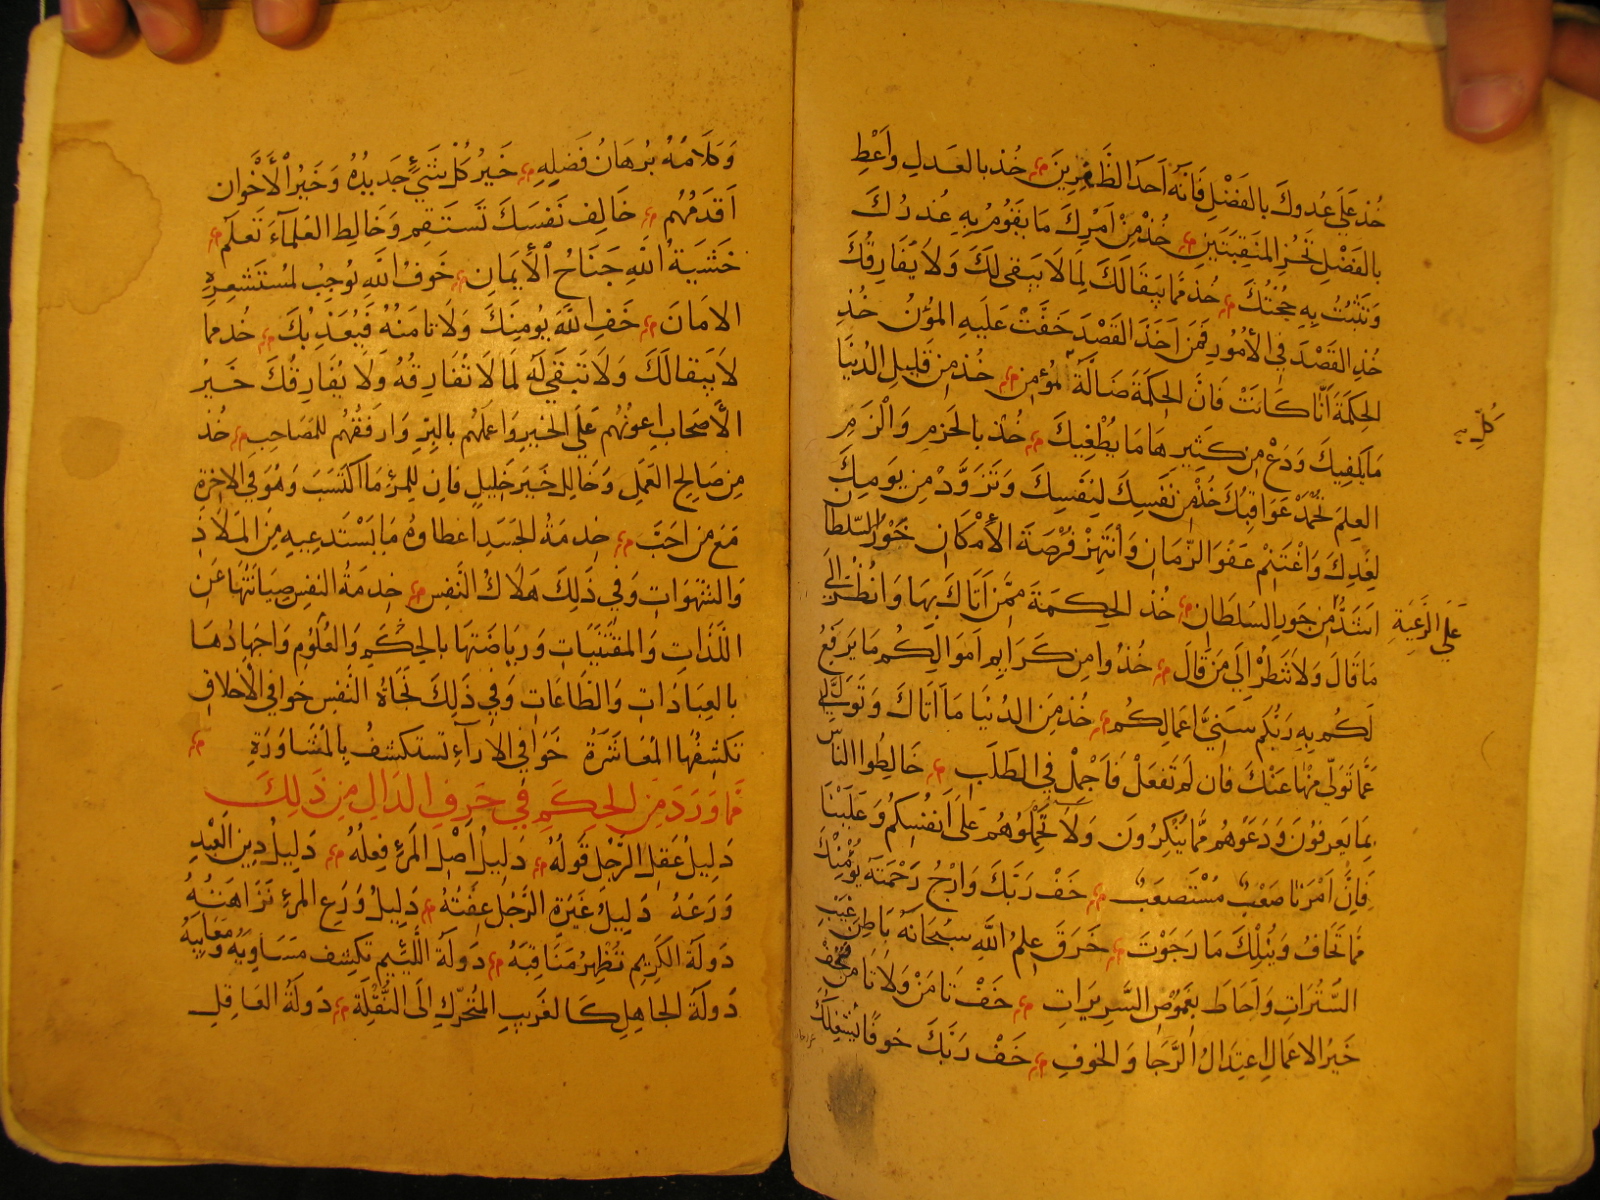 خُذ عَلَى عَدُوِّكَ بِالفَضْلِ فَاِنَّهُ اَحَدُ الظَّفَرَينَ خُذ بالعَدلِ وَاَعْطِ
بِالفَضْلِ تَحُزِ المَنقِبَتَينِ خُذْ مِنْ اَمْرِكَ مَا يَقوُمُ بِهِ عُذرُكَ
وَتَثْبُتُ بِهِ حُجَّتُكَ خُذ مِمَّا يَبقَا لَكَ لِمَا لَا يَبقى لَكَ وَلَا يُفَارِقُكَ
خُذِ القَصْدَ فِي الأُمُورِ فَمَن اَخَذَ القَصْدَ خَفَّتْ عَلَيهِ المُؤَنُ خُذِ
الحِكمَةَ اَنَّا كَانَتْ فَاِنَّ الحِكمَةَ ضَالَّةُ كُلِّ مُؤمِن خُذ مِن قَلِيلِ الدُنيَا
مَا يَكفِيكَ وَدَعْ مِن كَثِيرِهَا مَا يُطْغِيكَ خُذ بالحَزمِ وَالْزَمِ
العِلمَ تُحْمَدْ عَوَاقِبُكَ خُذْ مِن نَفسِكَ لِنَفسِكَ وَتَزَوَّدْ مِن يَومِكَ
لِغَدِكَ وَاغْتَنِمْ عَفوَ الزَّمَانِ وَانْتَهِزْ فُرْصَةَ الأِمْكَانِ خَوْرُ السُّلطَانِ
عَلَى الرَّعِيَّةِ اَشَدُّ مِن جَورِ السُلطَانِ خُذ الحِكمَةَ مِمَّن اَتَاكَ بِهَا وَانْظُرْ اِلَى
مَا قَالَ وَلَا تَنظُرْ اِلَى مَن قَالَ خُذُوا مِن كَرَايِمِ اَموَالِكُم مَا يَرفَعُ
لَكُم بِهِ رَبُّكُم سَنِيَّ اَعمَالِكُم خُذ مِنَ الدُنيَا مَا اَتَاكَ وَتَوَلَّ
عَمَّا تَوَلَّى مِنْهَا عَنْكَ فَاِن لَم تَفعَلْ فَاَجْمِلْ فِي الطَلَبِ خَالِطُوا النَاسَ
بِمَا يَعرِفوُنَ وَدَعَوهُم مِمَّا يُنكِرُونَ وَلَا تَحْمِلُوهُم عَلَى اَنفُسِكُم وَعَلَيْنَا
فَاِنَّ اَمْرَنَا صَعْبٌ مُسْتَصعَبٌ خَفْ رَبَّكَ وَارْجُ رَحْمَتَهُ يُؤْمِنْكَ
مِمَّا تَخَافُ وَيُنِلْكَ مَا رَجَوْتَ خَرَقَ عِلمُ اللَّهِ سُبحَانَهُ بَاطِنَ غَيْبِ
السُّتُرَاتِ وَاَحَاطَ بِغُموُضِ السَّرِيرَاتِ خَفْ تَامَنْ وَلَا تَامَنْ فَتَخَفْ
خَيرُ الاعمَالِ اعتِدَالُ الرَّجَا وَالخَوفِ خَفْ رَبَّكَ خَوفًا يَشْغِلُكَ
وَكَلَامُهُ بُرهَانُ فَضلِهِ خَيرُ كُلِّ شَيْءٍ جَدِيدُهُ وَخَيرُ الأَخْوانِ
اَقدَمُهُم خَالِف نَفسَكَ تَستَقِم وَخَالِطِ العُلَمَآءَ تَعلَم
خَشيَةُ اللَّهِ جَنَاحُ الأِيمَانِ خَوفُ اللَّهِ يُوجِبُ لِمُستَشعِرِهِ
الامَانَ خَفِ اللَّهَ يُومِنكَ وَلَا تامَنْهُ فَيُعَذِبُكَ خُد مما
لَا يَبقا لَكَ وَلَا تَبقَى لَهُ لِمَا لَا تُفَارِقُهُ وَلَا يُفَارِقُكَ خَيرُ
الأَصحَابِ اعوَنُهُم عَلَى الخَيرِ وَاعمَلُهُم بالبِرِّ وَارفَقُهُم لِلمَصَاحِبِ خُذ
مِن صَالِحِ العَمَلِ وَخَالِل خَيرَ خَلِيلٍ فَاِن لِلمَرءِ مَا اكتَسَبَ وَهُوَ فِي الاخِرَةِ
مَعَ مَن اَحَبَّ خِدمَةُ الجَسَدِ اعطاوهُ مَا يَسْتَدعِيهِ مِنَ المَلَاذِ
وَالشَهَوَاتِ وَفِي ذَلِكَ هَلَاكُ النَّفسِ خِدمَةُ النفسِ صِيَانَتُهَا عَن
اللَّذَاتِ وَالمقتَنَيَاتِ وَرِيَاضَتهَا بالحِكَمِ وَالعُلُومِ وَاجهَادُهَا
بالعِبَادَاتِ وَالطَاعَاتِ وَفِي ذَلِكَ نَجَاةُ النَفسِ خَوافي الأَخلاقِ
تَكشِفُهَا المُعَاشَرَةُ خَوَافي الارآءِ تستكشفُ بالمُشَاوَرَةِ
مَمَا وَرَدَ مِنَ الحِكَمِ فِي حَرفِ الدَالِ مِن ذَلِكَ
دَلِيلُ عَقلِ الرَّجُلِ قَولُهُ دَلِيلُ اَصْلِ المَرءِ فِعلُهُ دَلِيلُ دِينِ العَبْدِ
وَرَعُهُ دَلِيلُ غَيرَةِ الرَّجُلِ عِفَّتُهُ دَلِيلُ وَرَعِ المَرءِ نَزَاهَتُهُ
دَولَةُ الكَرِيمِ تُظْهِرُ مَنَاقِبَهُ دَولَةُ اللَئِيمِ تَكشِف مَسَاوِيَهُ وَمَعَايِبَهُ
دَولَةُ الجاهِلِ كَالغَرِيبِ المُتَحَرِّكِ اِلَى النُّقْلَةِ دَولَةُ العَاقِلِ